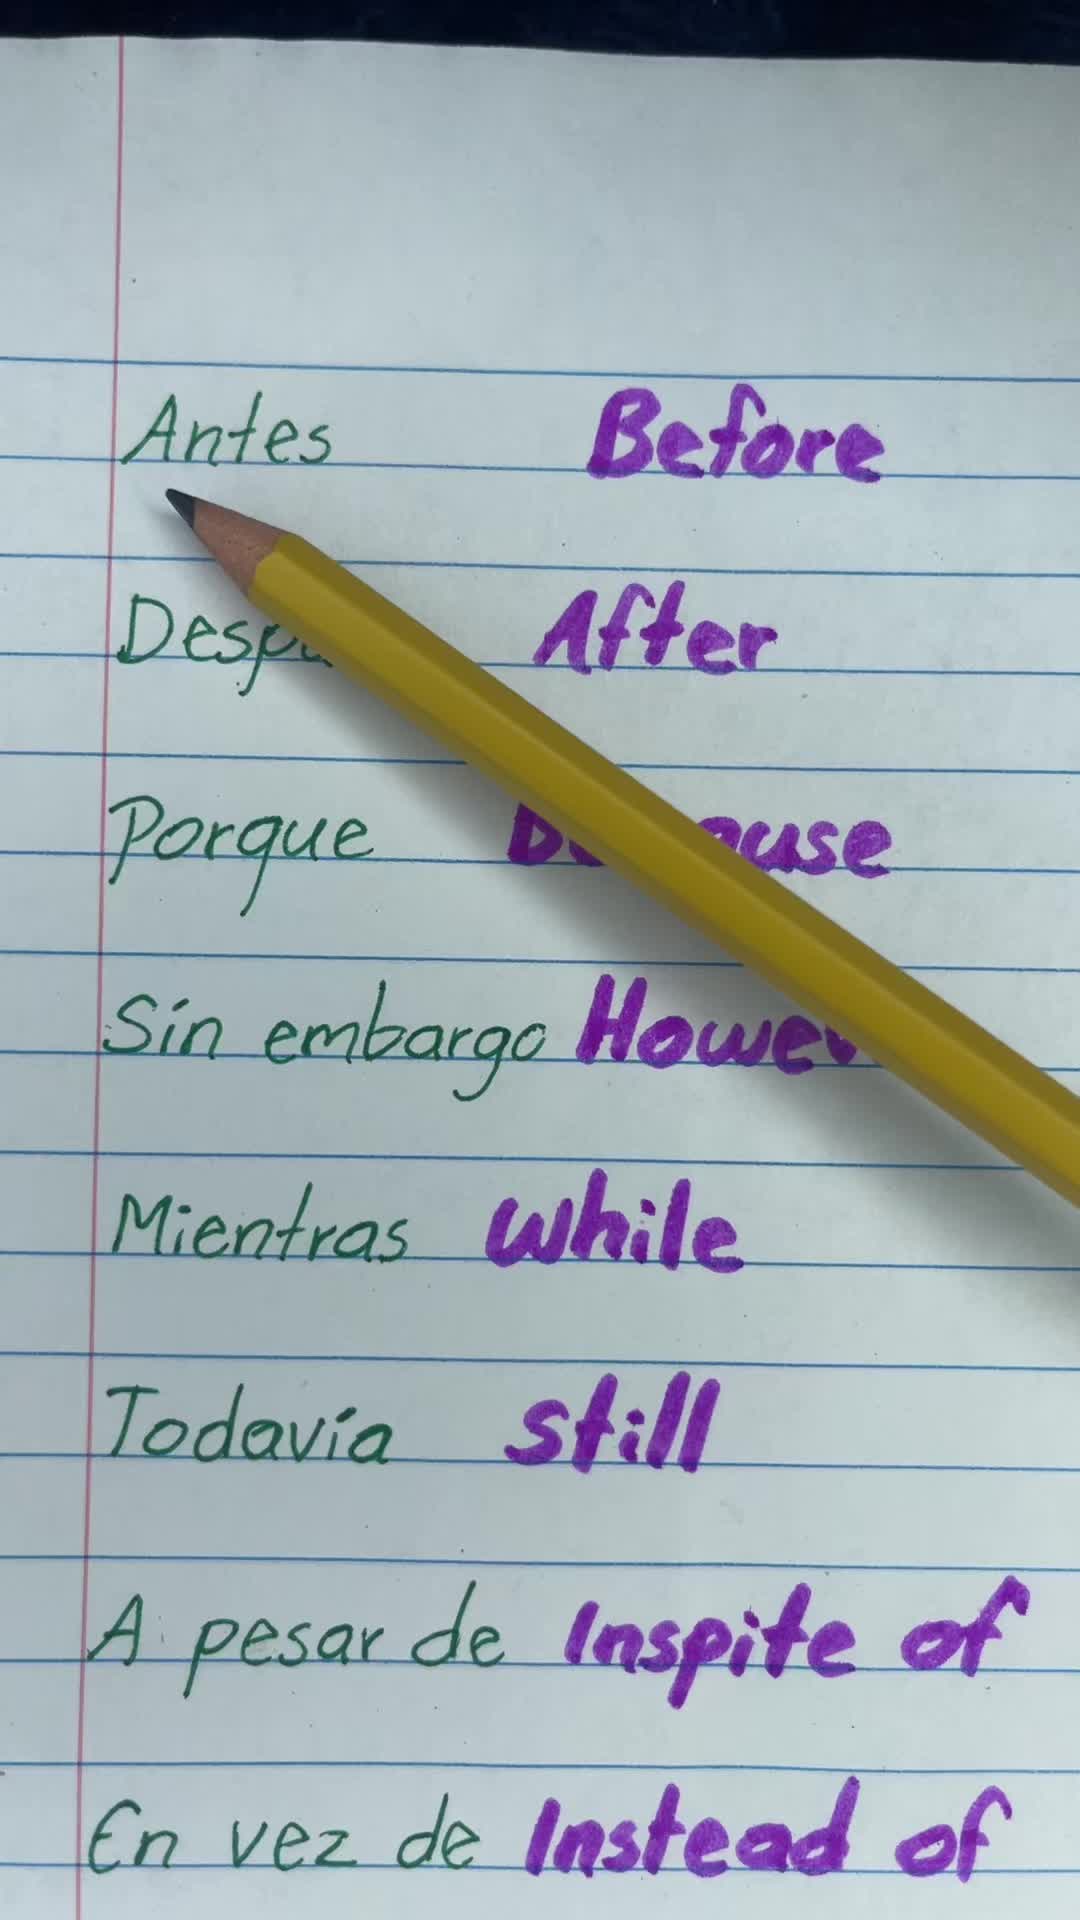 Antes Before
After
Porque
Sin embargo
Mientras while
Todavía still
A pesar de Inspite of
En vez de Instead of